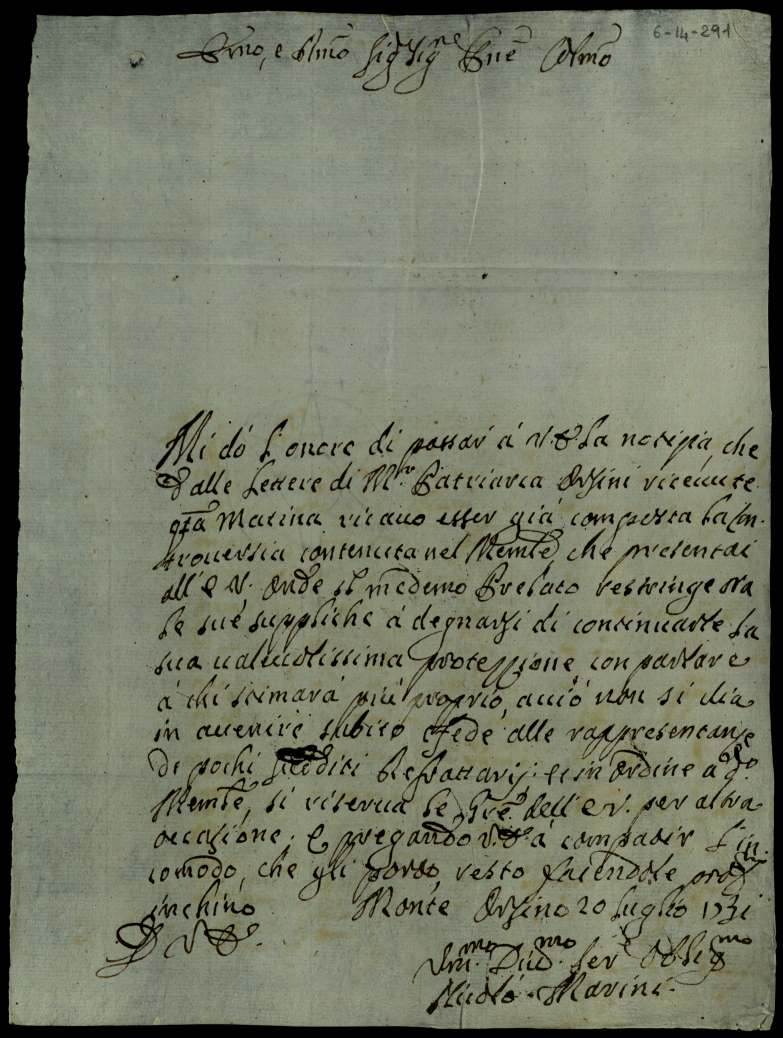 6-14-291
Emo, e Rmo Sig.r Sig.re Pne Colmo
Mi dò l'onore di passar à V. E. la notizia, che
dalle lettere di M.r Patriarca Orsini riceuute
q.sta Matina ricauo esser già composta la Con-
trouersia contenuta nel Memle, che presentai
all' E. V. Onde il medemo Prelato restringe ora
le sue suppliche à degnarsi di continuarle la
sua ualeuolissima protezzione, con parlare
à chi stimarà più proprio, acciò non si dia
in auuenire subito fede alle rappresentanze
di pochi sudditi Refrattarij: et in ordine a d.o
Memle, si riserua le gre dell' E. V. per altra
occasione. E pregando V. E. à compatir l'in-
comodo, che gli porto, resto facendole prof.mo
inchino Monte Orsino 20 luglio 1731
D. V. E.
Vm.mo Diu.mo Ser.e Oblig.mo
Nicolò Marini